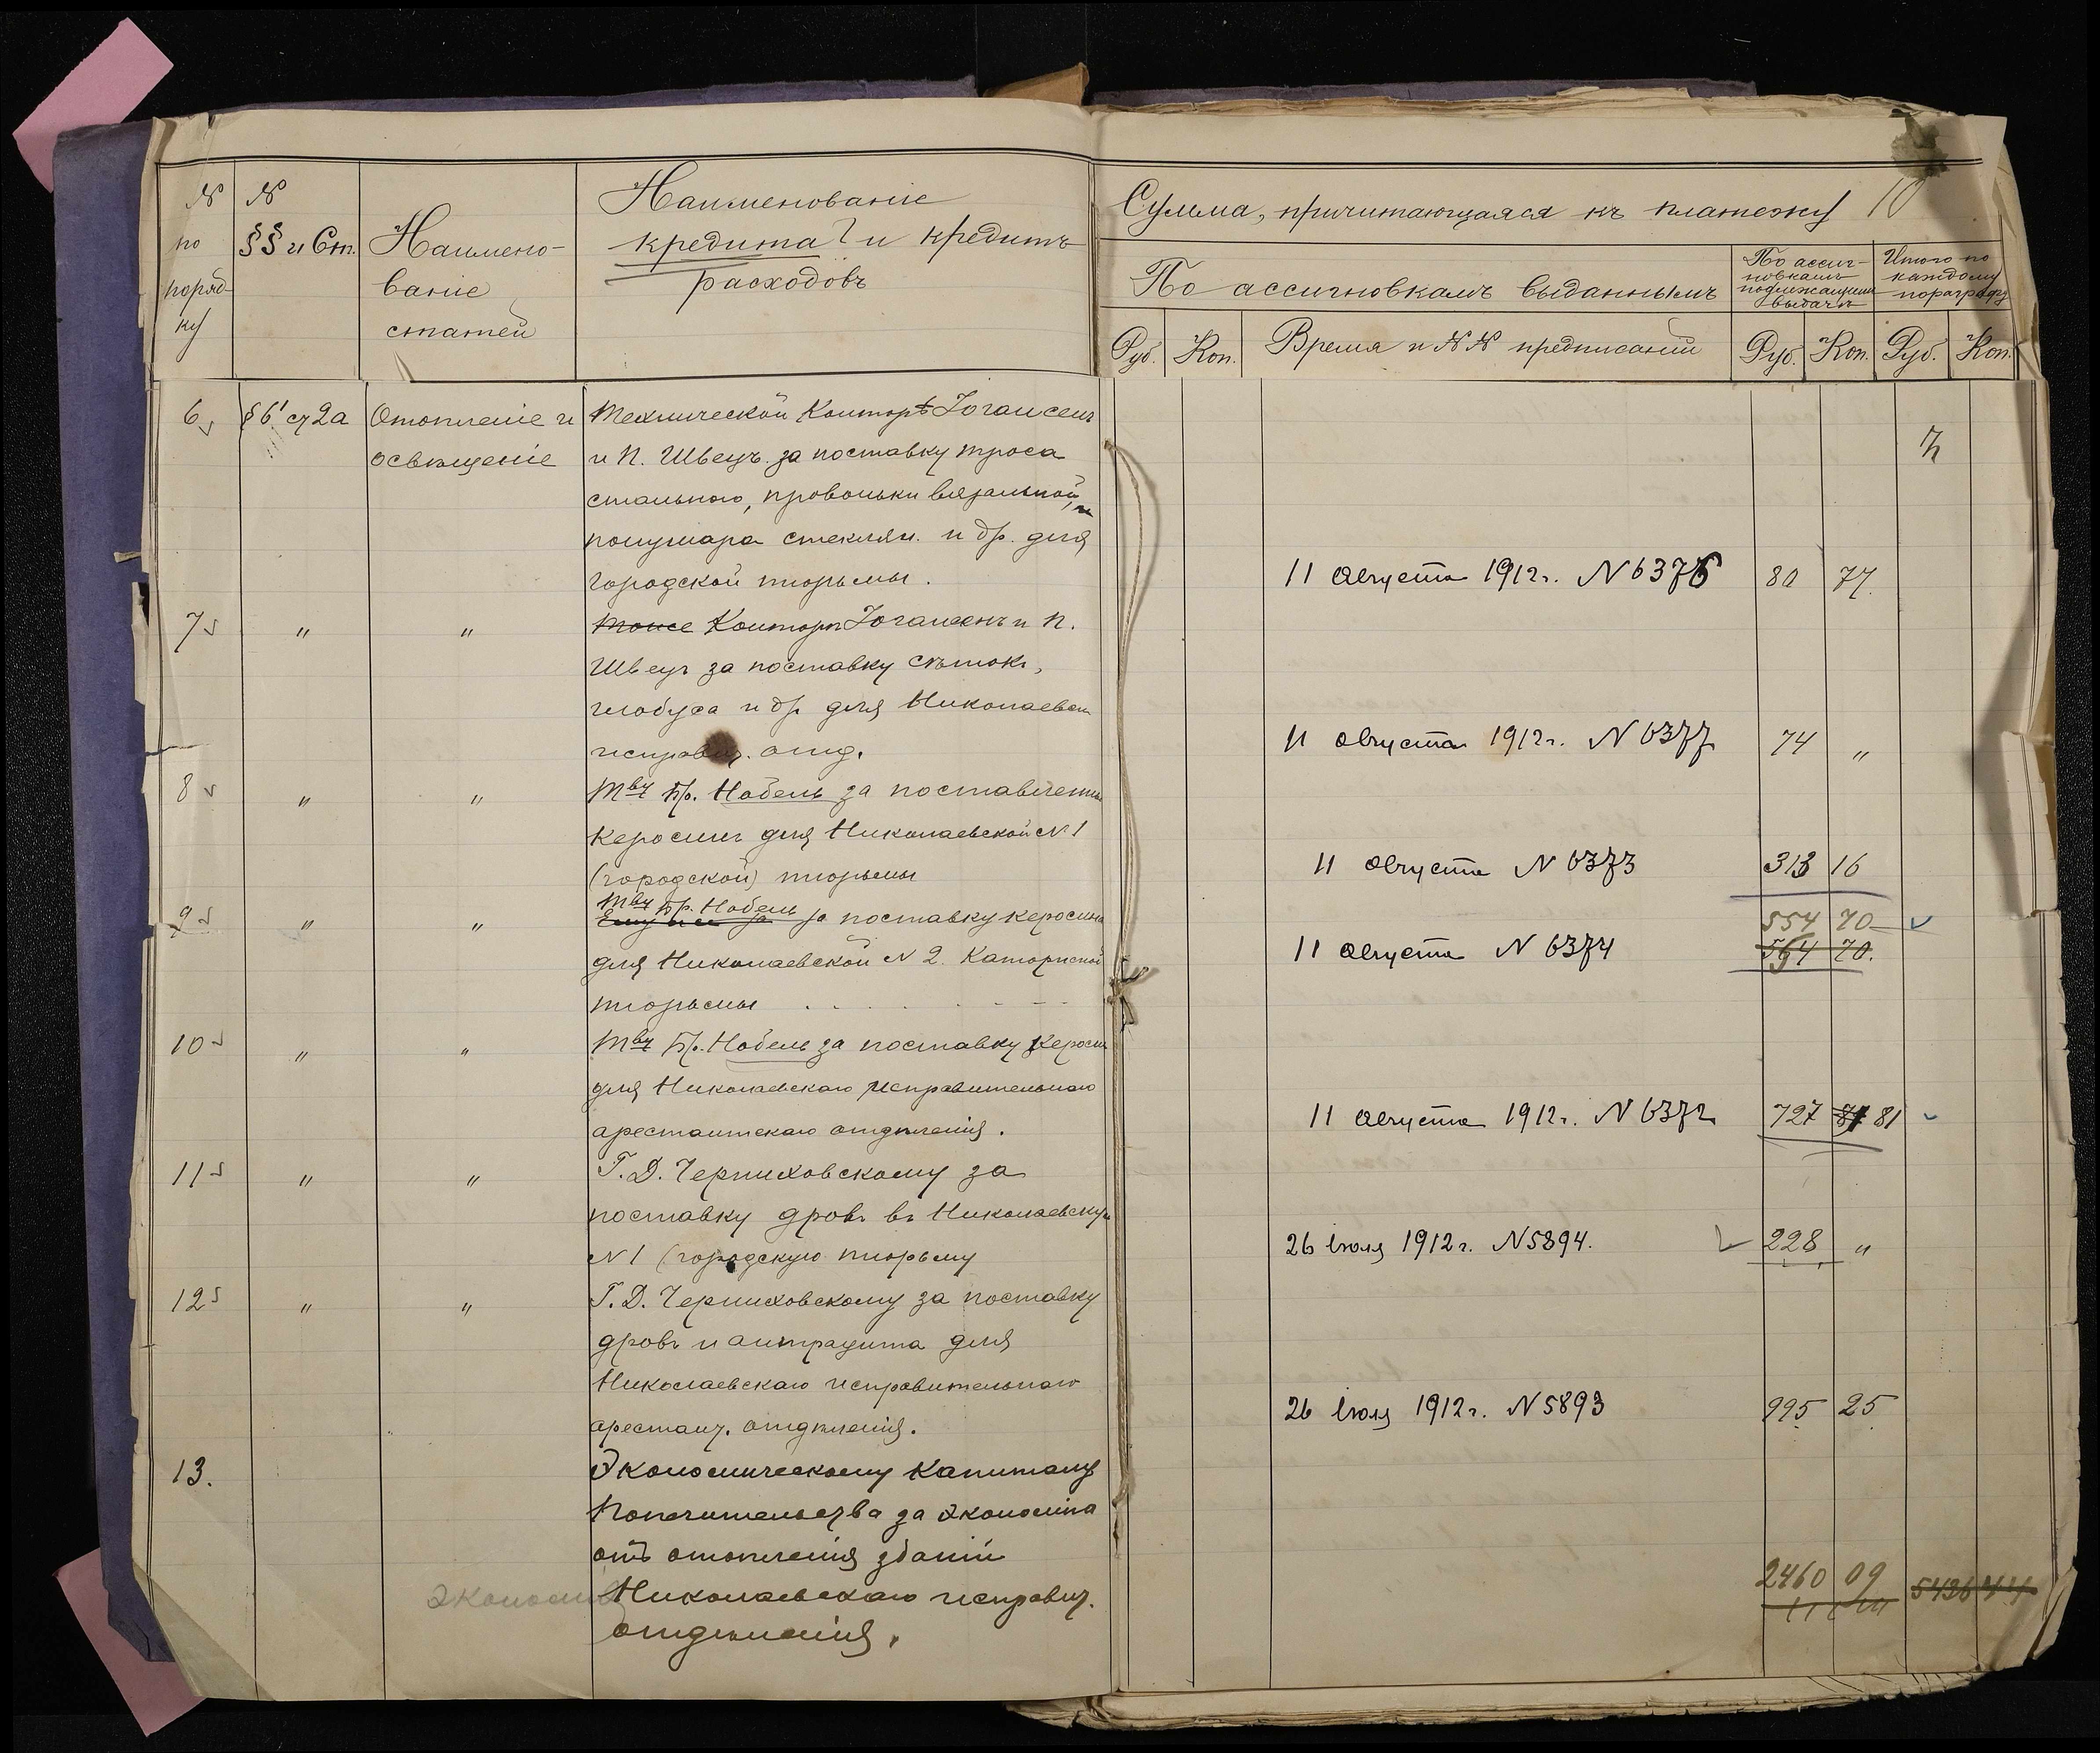 № по поряд- ку
№ §§ и Ст.
Наимено-
ваніе
статей
Наименованіе
кредита и кредитъ
расходовъ
Сумма, причитающаяся къ платежу 10
По ассигновкамъ выданнымъ
По ассиг-
новкамъ
подлежащимъ
выдачѣ
Итого по
каждому
параграфу
Руб. Коп. Время и №№ предписаній Руб. Коп. Руб. Коп.
6 § 6 ст 2а Отопленіе и Технической Конторѣ Іогансенъ
освѣщеніе и П. Швецъ за поставку троса
стального, проволоки вязальной, и
полушара стеклян. и др. для
городской тюрьмы. 11 Августа 1912 г. N 6376 80 77.
7 " " тоже Конторѣ Іогансенъ и П.
Швецъ за поставку сѣтокъ,
глобуса и др для Николаевск
исправит. отд. 11 Августа 1912 г. N 6377 74 "
8 " " Тву Бр. Нобель за поставленный
керосинъ для Николаевской N 1
(городской) тюрьмы 11 Августа N 6373 313 16
9 " " Тву Бр. Нобель за поставку керосина
554 70
для Николаевской N 2. Каторжной 11 Августа N 6374 564 70.
тюрьмы
10 " " Тву Бр. Нобель за поставку керосин
для Николаевскаго Исправительнаго
арестантскаго отдѣленія. 11 Августа 1912 г. N 6372 727 81
11 " " Г. Д. Черниховскому за
поставку дровъ въ Николаевскую
N 1 (городскую тюрьму 26 Іюля 1912 г. N 5894. 228 "
12 " " Г. Д. Черниховскому за поставку
дровъ и антрацита для
Николаевскаго исправительнаго
арестант. отдѣленія. 26 Іюля 1912 г. N 5893 995 25
13. Экономическому Капиталу
Попечительства за экономіи
отъ отопленія зданій
Николаевскаго исправит. 2460 09 5436 44
отдѣленія.